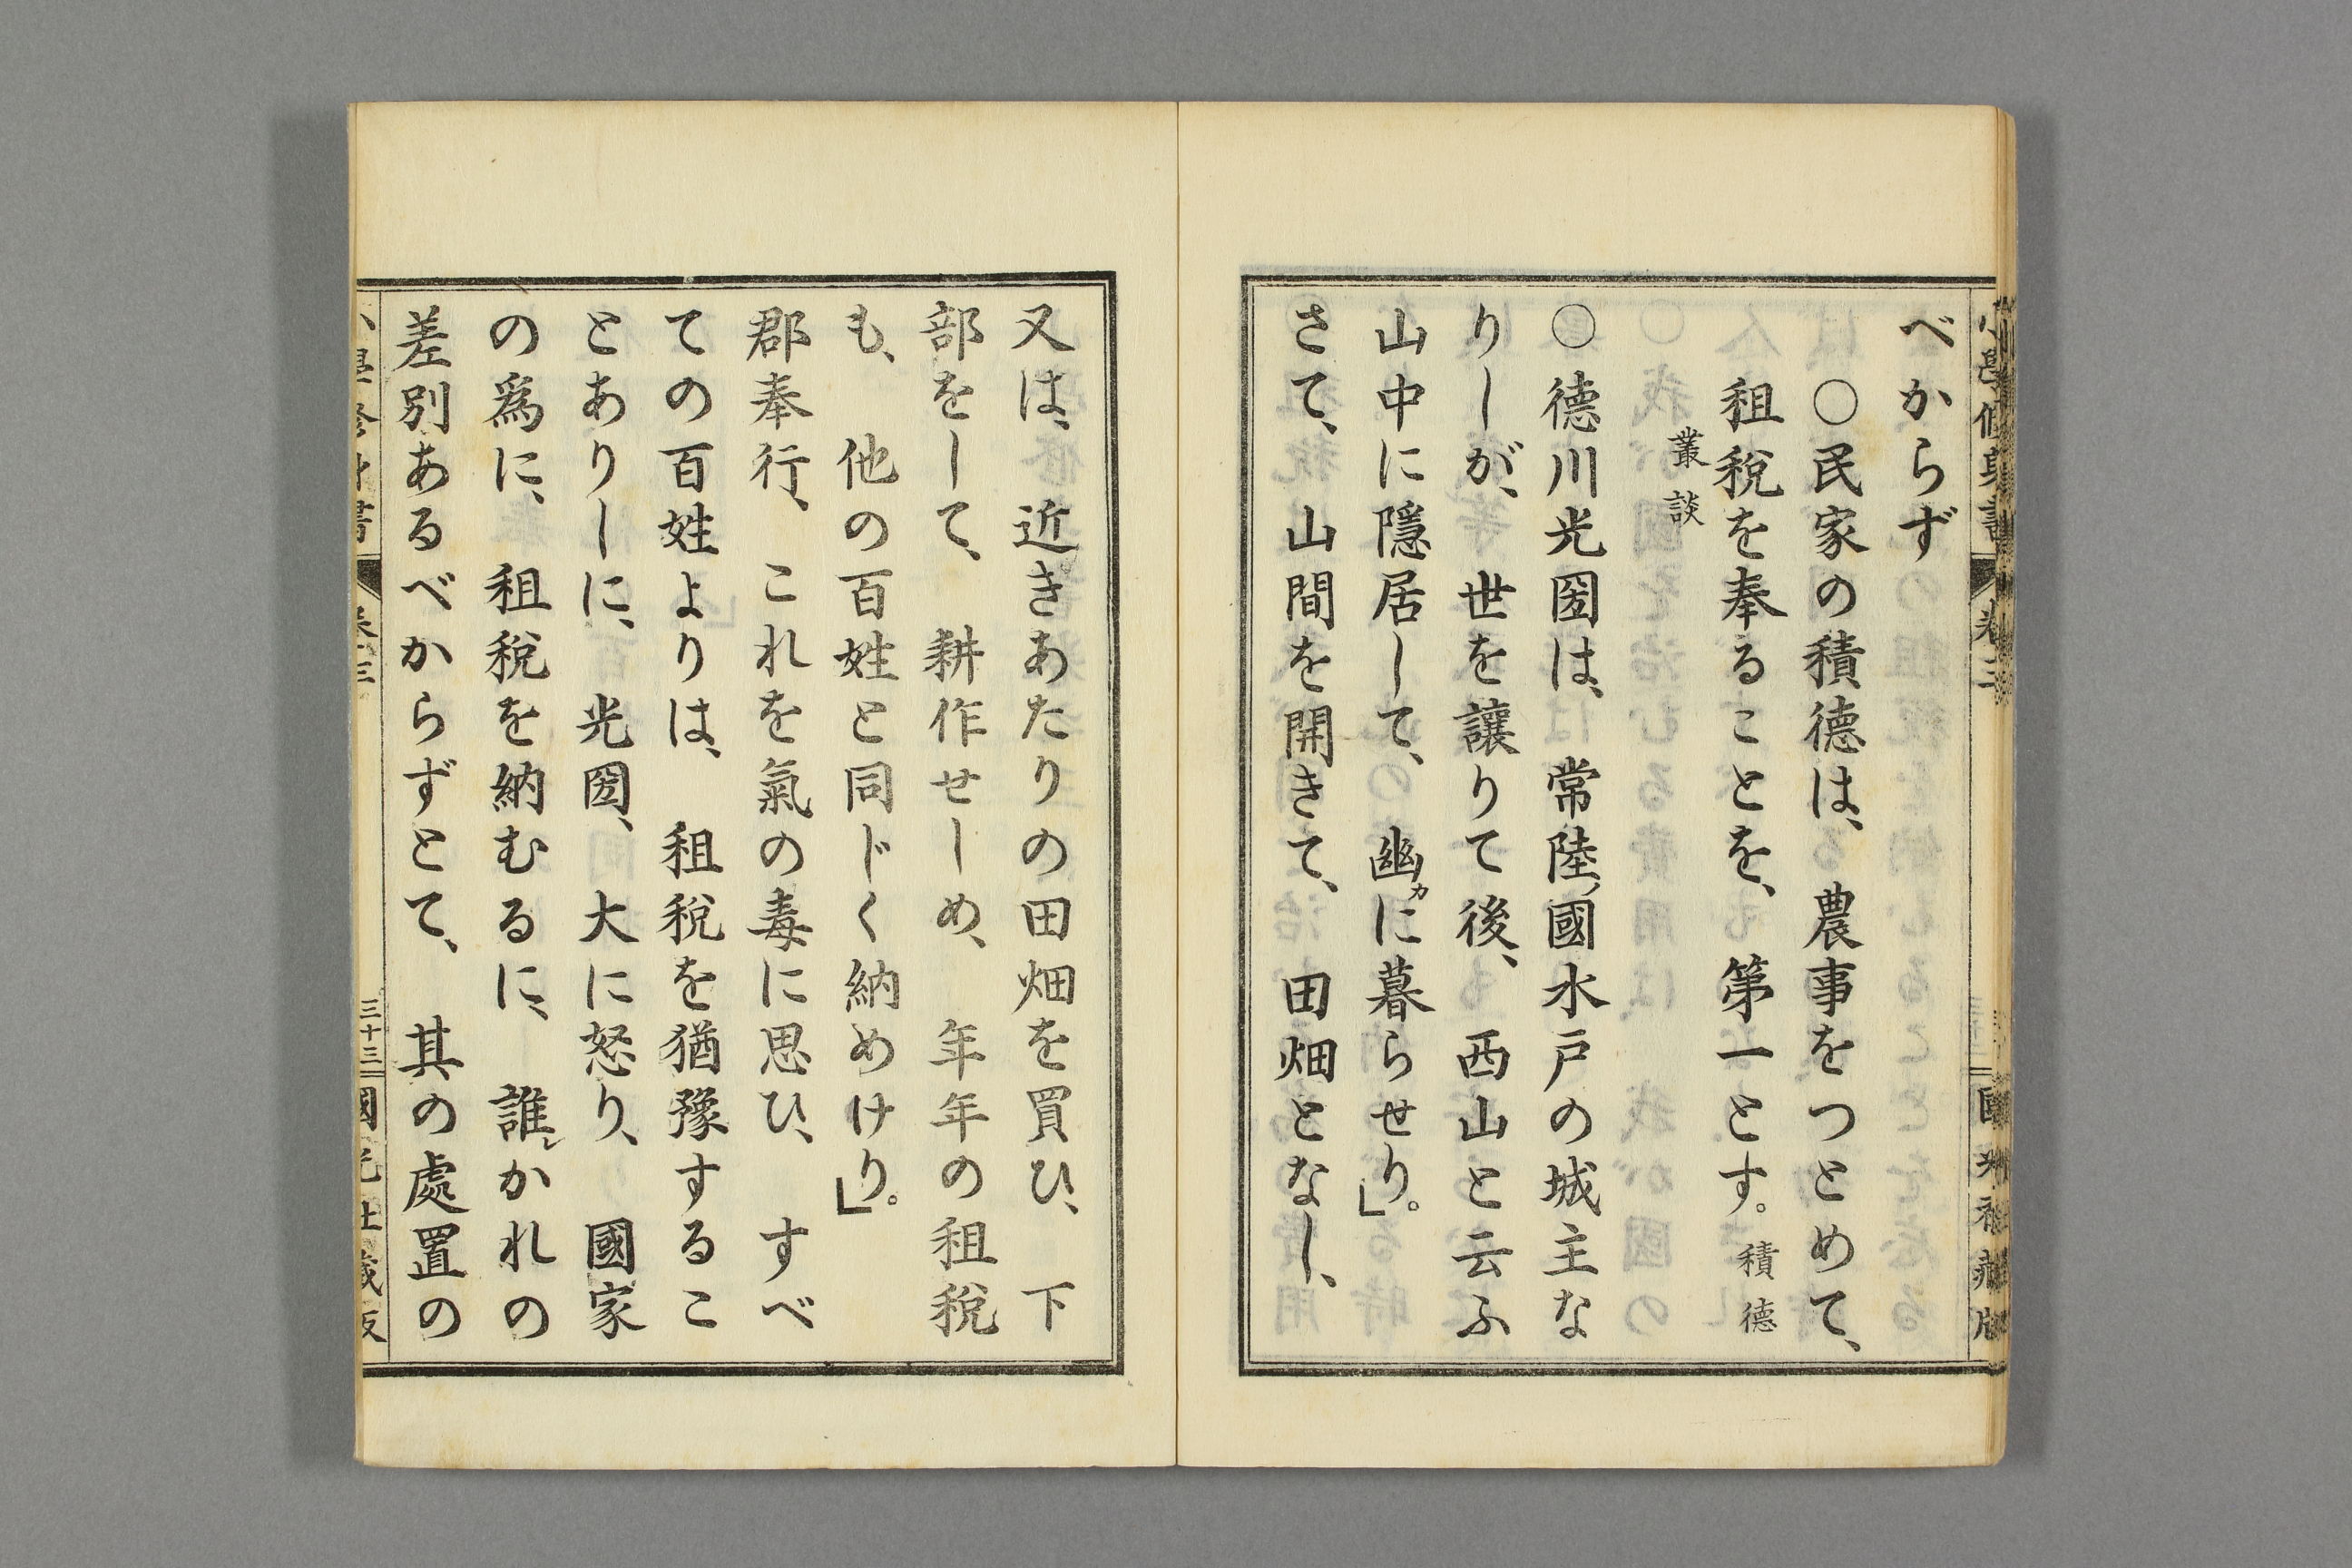 べからず
○民家の積德は、農事をつとめて、
租稅を奉ることを、第一とす。積德
叢談
○德川光圀は、常陸國水戸の城主な
りしが、世を讓りて後、西山と云ふ
山中に隱居して、幽カに暮らせり。」
さて、山間を開きて、田畑となし、
又は、近きあたりの田畑を買ひ、下
部をして、耕作せしめ、年年の租稅
も、他の百姓と同じく納めけり。」
郡奉行、これを氣の毒に思ひ、すべ
ての百姓よりは、租稅を猶豫するこ
とありしに、光圀、大に怒り、國家
の爲に、租稅を納むるに、誰レかれの
差別あるべからずとて、其の處置の
三十三